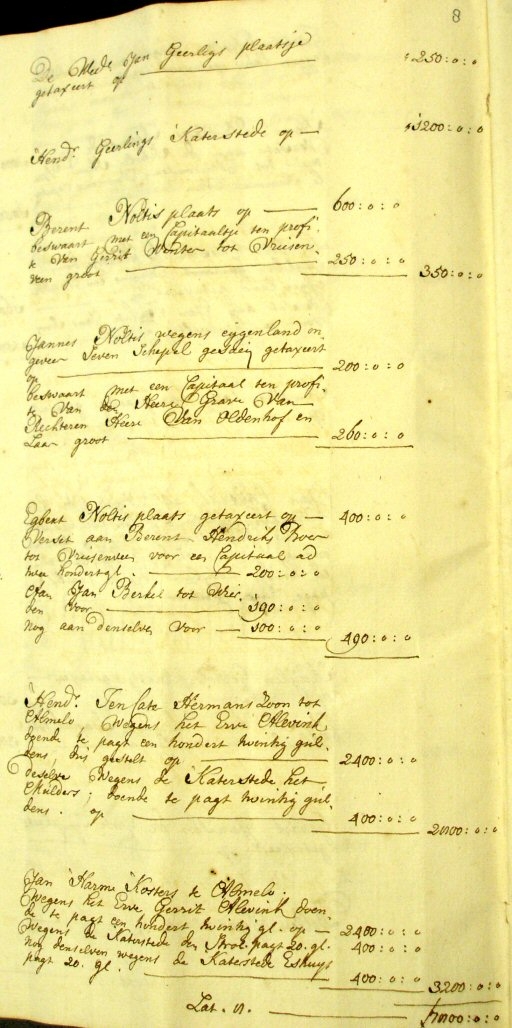 8
De Wede Jan Geerligs plaatsje
getaxeert op 250:0:0
Hendr Geerlings Katerstede op — 1200:0:0
Berent Noltis plaats op — 600:0:0
beswaart met een Capitaaltje ten profi-
te van Gerrit Winter tot Vriesen-
veen groot 250:0:0
350:0:0
Jannes Noltis wegens eygenland on
geveer Seven Schepel gesaey getaxeert
op 200:0:0
beswaart met een Capitaal ten profi-
te van de Heere Grave van
Rechteren Heere van Oldenhof en
Laar groot 260:0:0
Egbert Noltis plaats getaxeert op — 400:0:0
Verset aan Berent Hendriks
tot Vriesenveen voor een Capitaal ad
twee hondert gl. 200:0:0
Aan Jan Berkel tot
den voor 190:0:0
nog aan denselven voor — 100:0:0
490:0:0
Hendr. Ten Cate Hermans Zoon tot
Almelo wegens het Erve Alevink
doende te pagt een hondert twintig gul-
dens, dus gestelt op 2400:0:0
deselve wegens de Katerstede het
Mulders; doende te pagt twintig gul-
dens. op 400:0:0
2800:0:0
Jan Harms Kosters te Almelo.
Wegens het Erve Gerrit Alevink doen-
de te pagt een hondert twintig gl. op — 2400:0:0
Wegens de Katerstede den pagt 20. gl. 400:0:0
nog denselven wegens de Katerstede
pagt 20. gl. 400:0:0
3200:0:0
Lat.